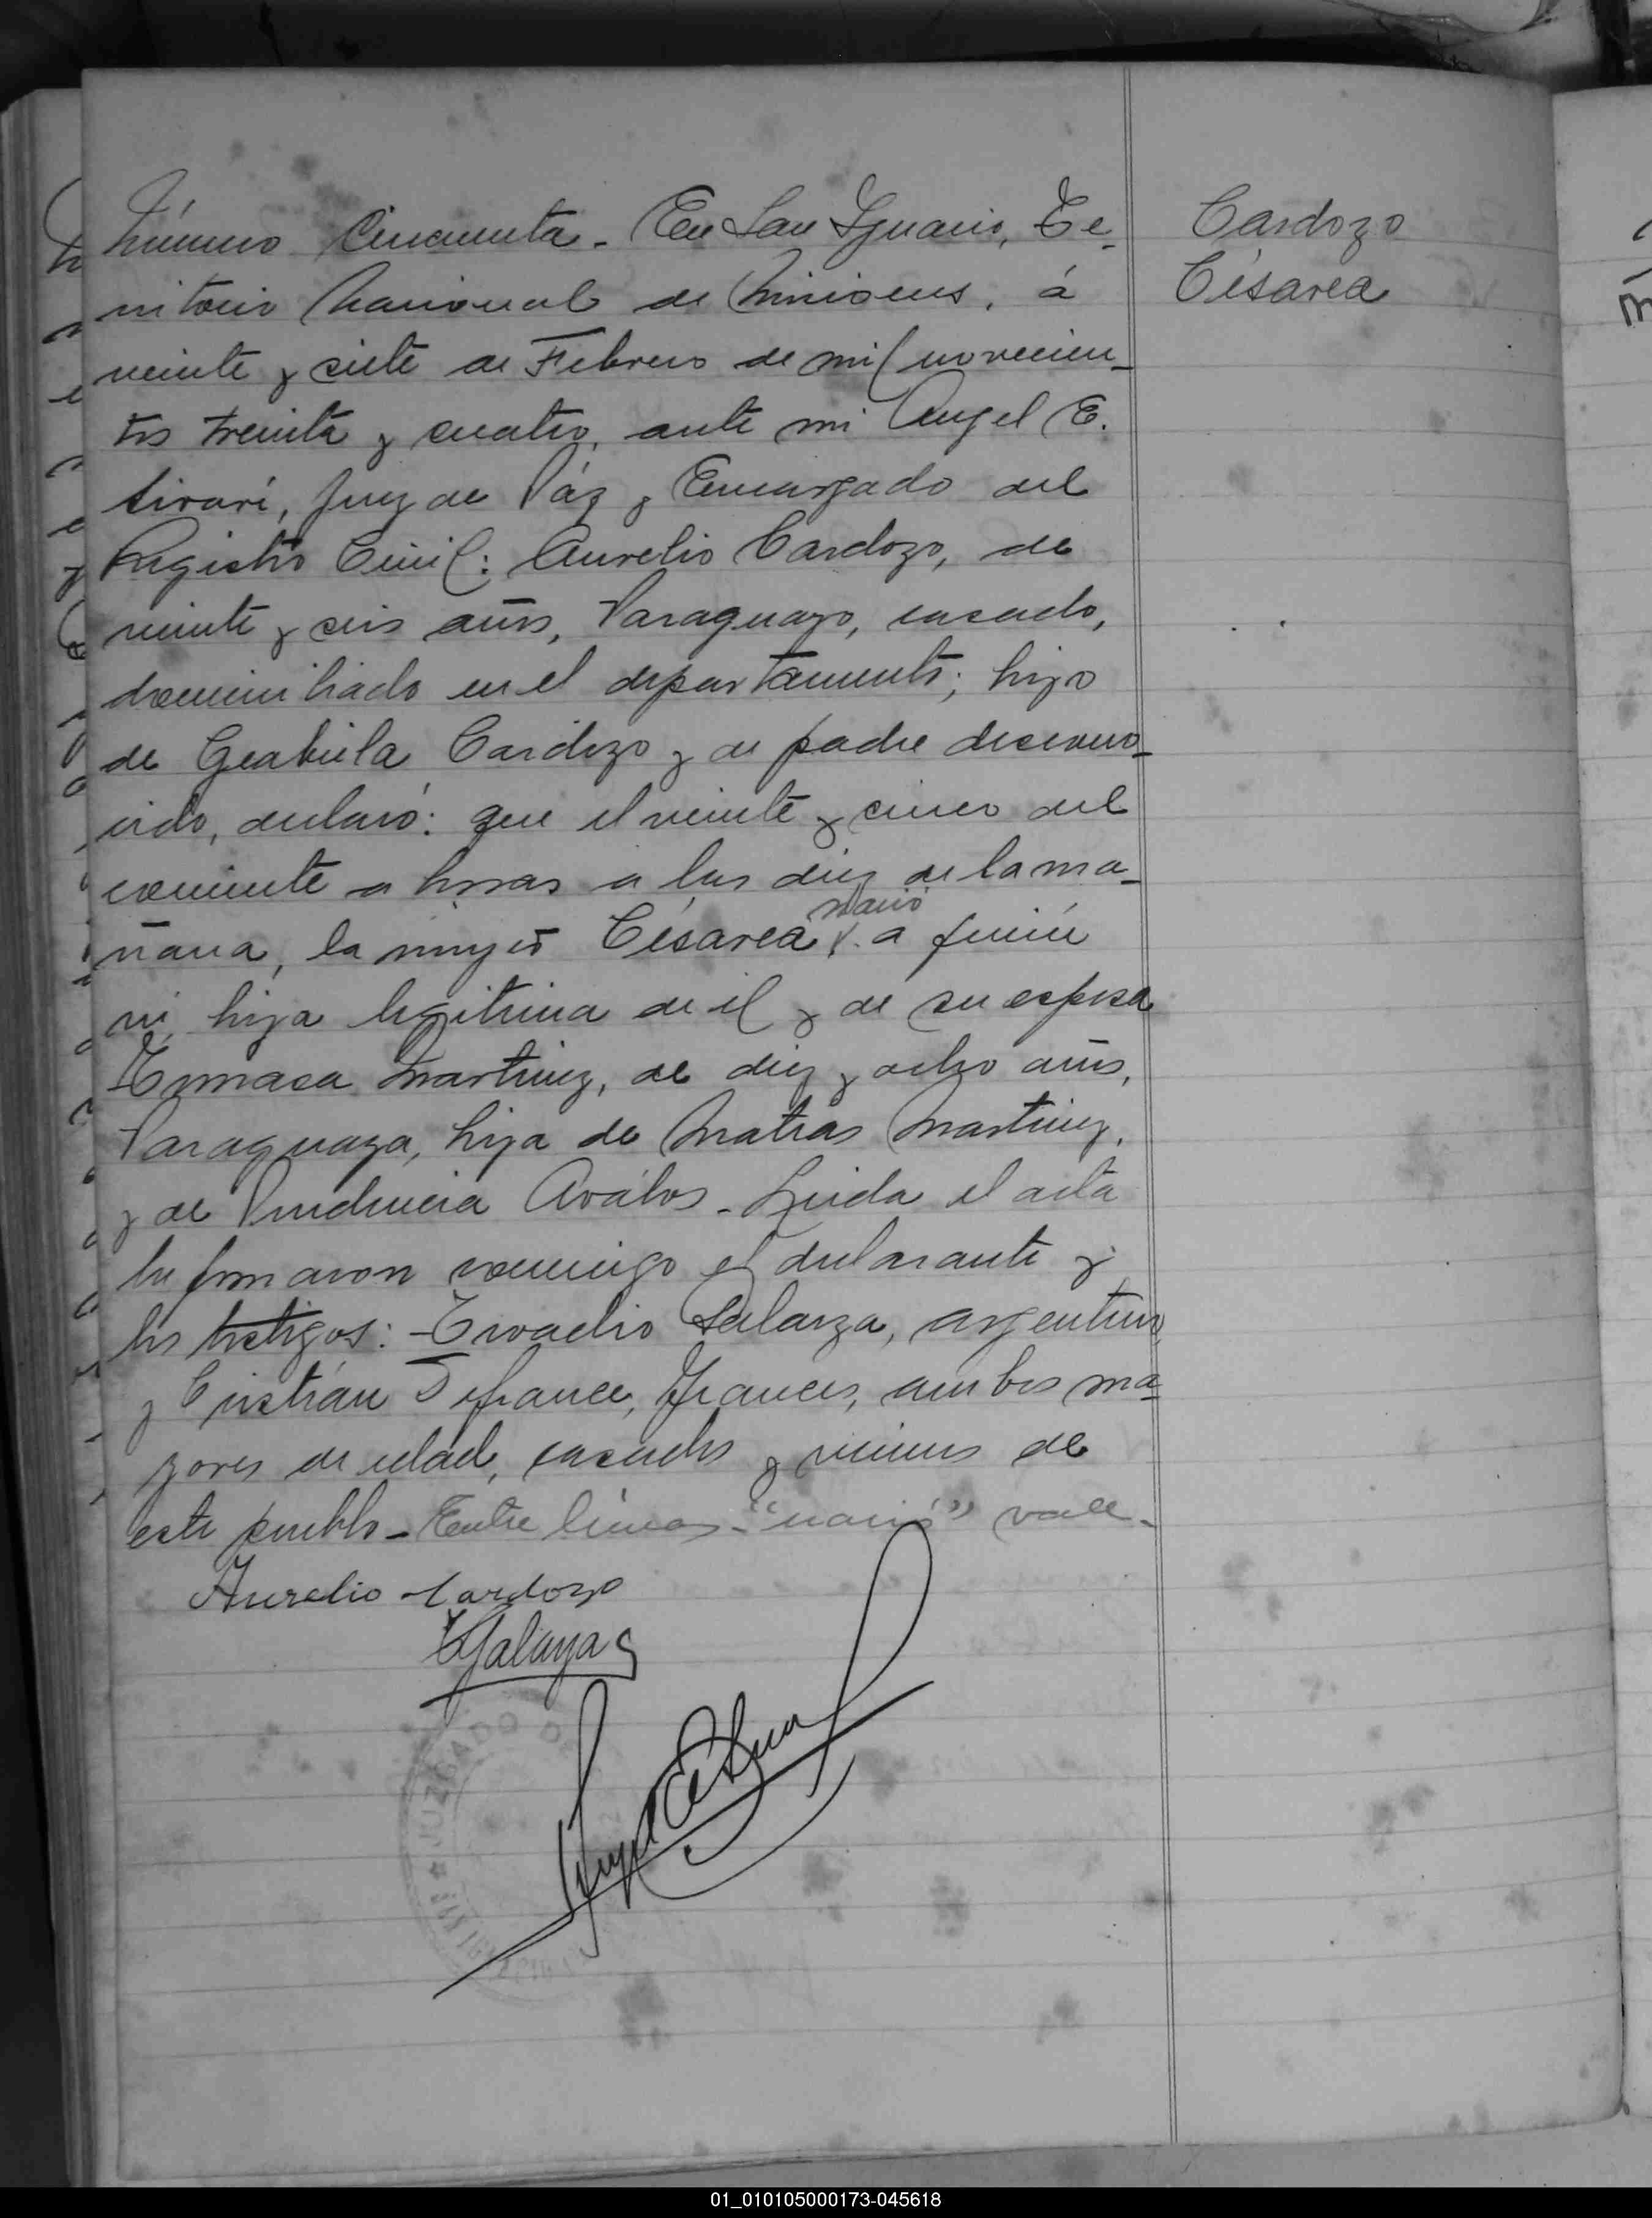 Número Cincuenta - En San Ygnacio, Te-
rritorio Nacional de Misiones, á
veinte y siete de Febrero de mil novecien-
tos treinta y cuatro, ante mi Angel E.
Juez de Páz y Encargado del
Registro Civil: Aurelio Cardozo, de
veinte y seis años, Paraguayo, casado,
domiciliado en el departamento; hijo
de Geabriela Cardozo y de padre descono-
cido, declaró: que el veinte y cinco del
corriente a horas a las diez de la ma-
nació
ñana, la mujer Césarea. a quién
vi, hija legitima de el y de su esposa
Tomasa Martinez, de diez y ocho años,
Paraguaya, hija de Matias Martinez,
y de Prudencia Aválos - Leida el acta
la firmaron conmigo el declarante y
los testigos: - Evadio Galarza, argentino,
y Cristián Defrance, Frances, ambos ma-
yores de edad, casados y vecinos de
este pueblo - Entre lineas - "nació" vale -
Aurelio Cardozo
Angel E.
JUZGADO DE
Cardozo
Césarea
01_010105000173-045618